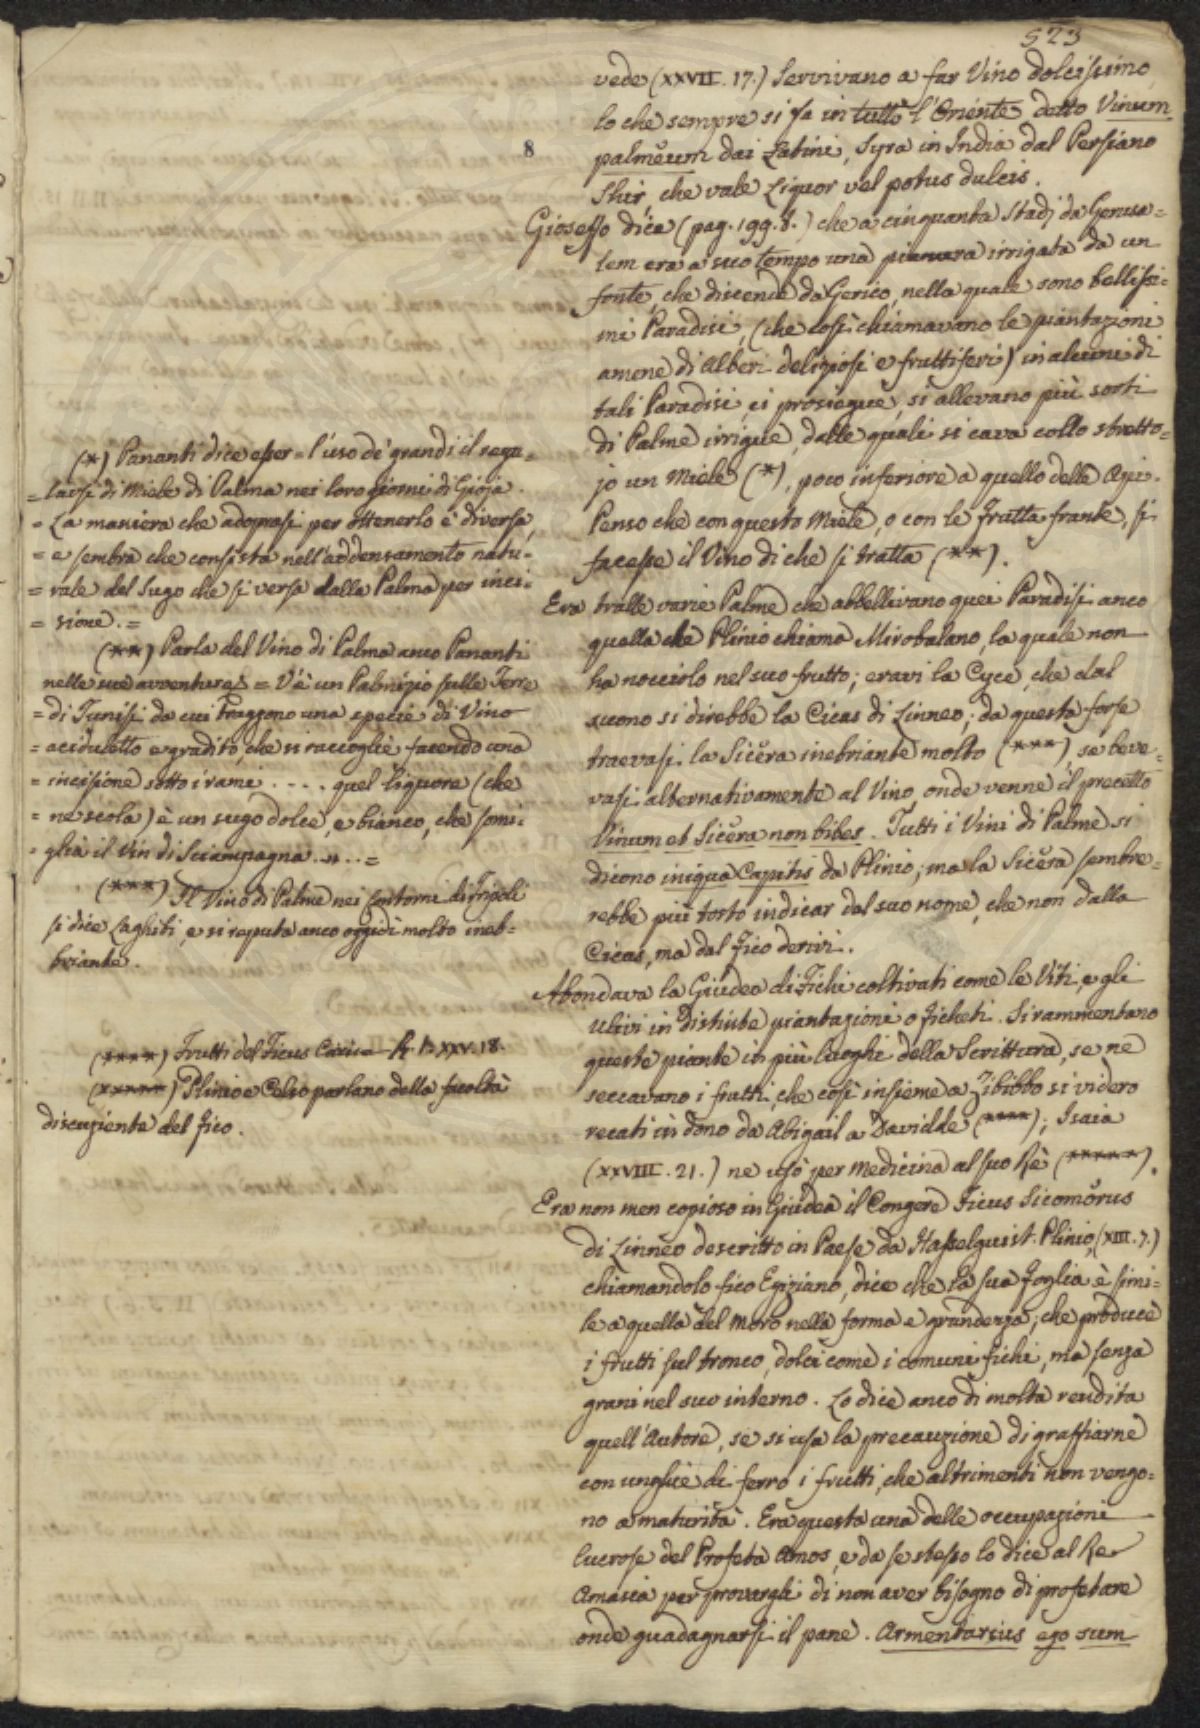 523
8
vede (XXVII. 17.) Servivano a far Vino dolcissimo
lo che sempre si fa in tutto l'Oriente detto Vinum
palmeum dai Latini, Syra in India dal Persiano
Shir, che vale Liquor vel potus dulcis.
Gioseffo dice (pag. 199. 8.) che a cinquanta stadj da Gerusa=
lem era a suo tempo una pianura irrigata da un
fonte, che discende da Gerico, nella quale sono bellissi=
mi Paradisi, (che così chiamavano le piantazioni
amene di Alberi deliziosi e fruttiferi) in alcuni di
tali Paradisi, ei prosiegue, si allevano più sorti
di Palme irrigue, dalle quali si cava collo stretto=
jo un Miele (*), poco inferiore a quello delle Api.
Penso che con questo Miele, o con le frutta frante, si
facesse il Vino di che si tratta (**).
Era tralle varie Palme che abbellivano quei Paradisi anco
quella che Plinio chiama Mirobalano, la quale non
ha nocciolo nel suo frutto; eravi la Cyce, che dal
suono si direbbe la Cicas di Linneo; da questa forse
traevasi la Sicera inebriante molto (***), se beve=
vasi alternativamente al Vino, onde venne il precetto
Vinum et Sicera non bibes. Tutti i Vini di Palme si
dicono iniqua Capitis da Plinio; ma la Sicera sembre=
rebbe più torto indicar dal suo nome, che non dalla
Cicas, ma dal fico derivi.
Abondava la Giudea di Fichi coltivati come le Viti, e gli
Ulivi in distinte piantazioni o ficheti. Si rammentano
queste piante in più luoghi della Scrittura, se ne
seccavano i frutti, che così insieme a Zibibbo si videro
recati in dono da Abigail a Davidde (****); Isaia
(XXVIII. 21.) ne usò per medicina al suo Rè (*****).
Era non men copioso in Giudea il Congere Ficus Sicomorus
di Linneo descritto in Paese da Hasselquist. Plinio, (XIII. 7.)
chiamandolo fico Egiziano, dice che la sua foglia è simi=
le a quella del Moro nella forma e grandezza; che produce
i frutti sul tronco, dolci come i comuni fichi, ma senza
grani nel suo interno. Lo dice anco di molta rendita
quell'Autore, se si usa la precauzione di graffiarne
con unghie di ferro i frutti, che altrimenti non vengo=
no a maturità. Era questa una delle occupazioni
lucrose del Profeta Amos, e da se stesso lo dice al Re
Amasia per provargli di non aver bisogno di profetare
onde guadagnarsi il pane. Armentarius ego sum
(*) Pananti dice esser = l'uso de' grandi il rega=
= larsi di Miele di Palma nei loro giorni di Gioja.
= La maniera che adoprasi per ottenerlo è diversa,
= e sembra che consista nell'addensamento natu=
= rale del sugo che si versa dalla Palma per inci=
= sione. =
(**) Parla del Vino di Palma anco Pananti
nelle sue avventure = V'è un Palmizio sulle Terre
= di Tunisi da cui traggono una specie di Vino
= aciduletto e gradito, che si raccoglie facendo una
= incisione sotto i rami .... quel liquore (che
= ne scola) è un sugo dolce, e bianco, che somi=
= glia il Vin di Sciampagna ... =
(***) Il Vino di Palme nei contorni di Tripoli
si dice Laghibi, e si reputa anco oggidì molto ineb=
briante.
(****) Frutti del Ficus Carica R. 1. XXV. 18.
(*****) Plinio e Celso parlano della facoltà
discuziente del fico.